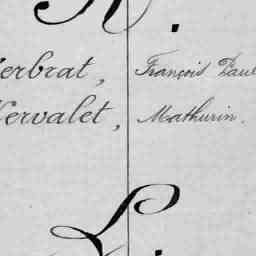 K.
Kerbrat, François Paul
Kervalet, Mathurin.
L.